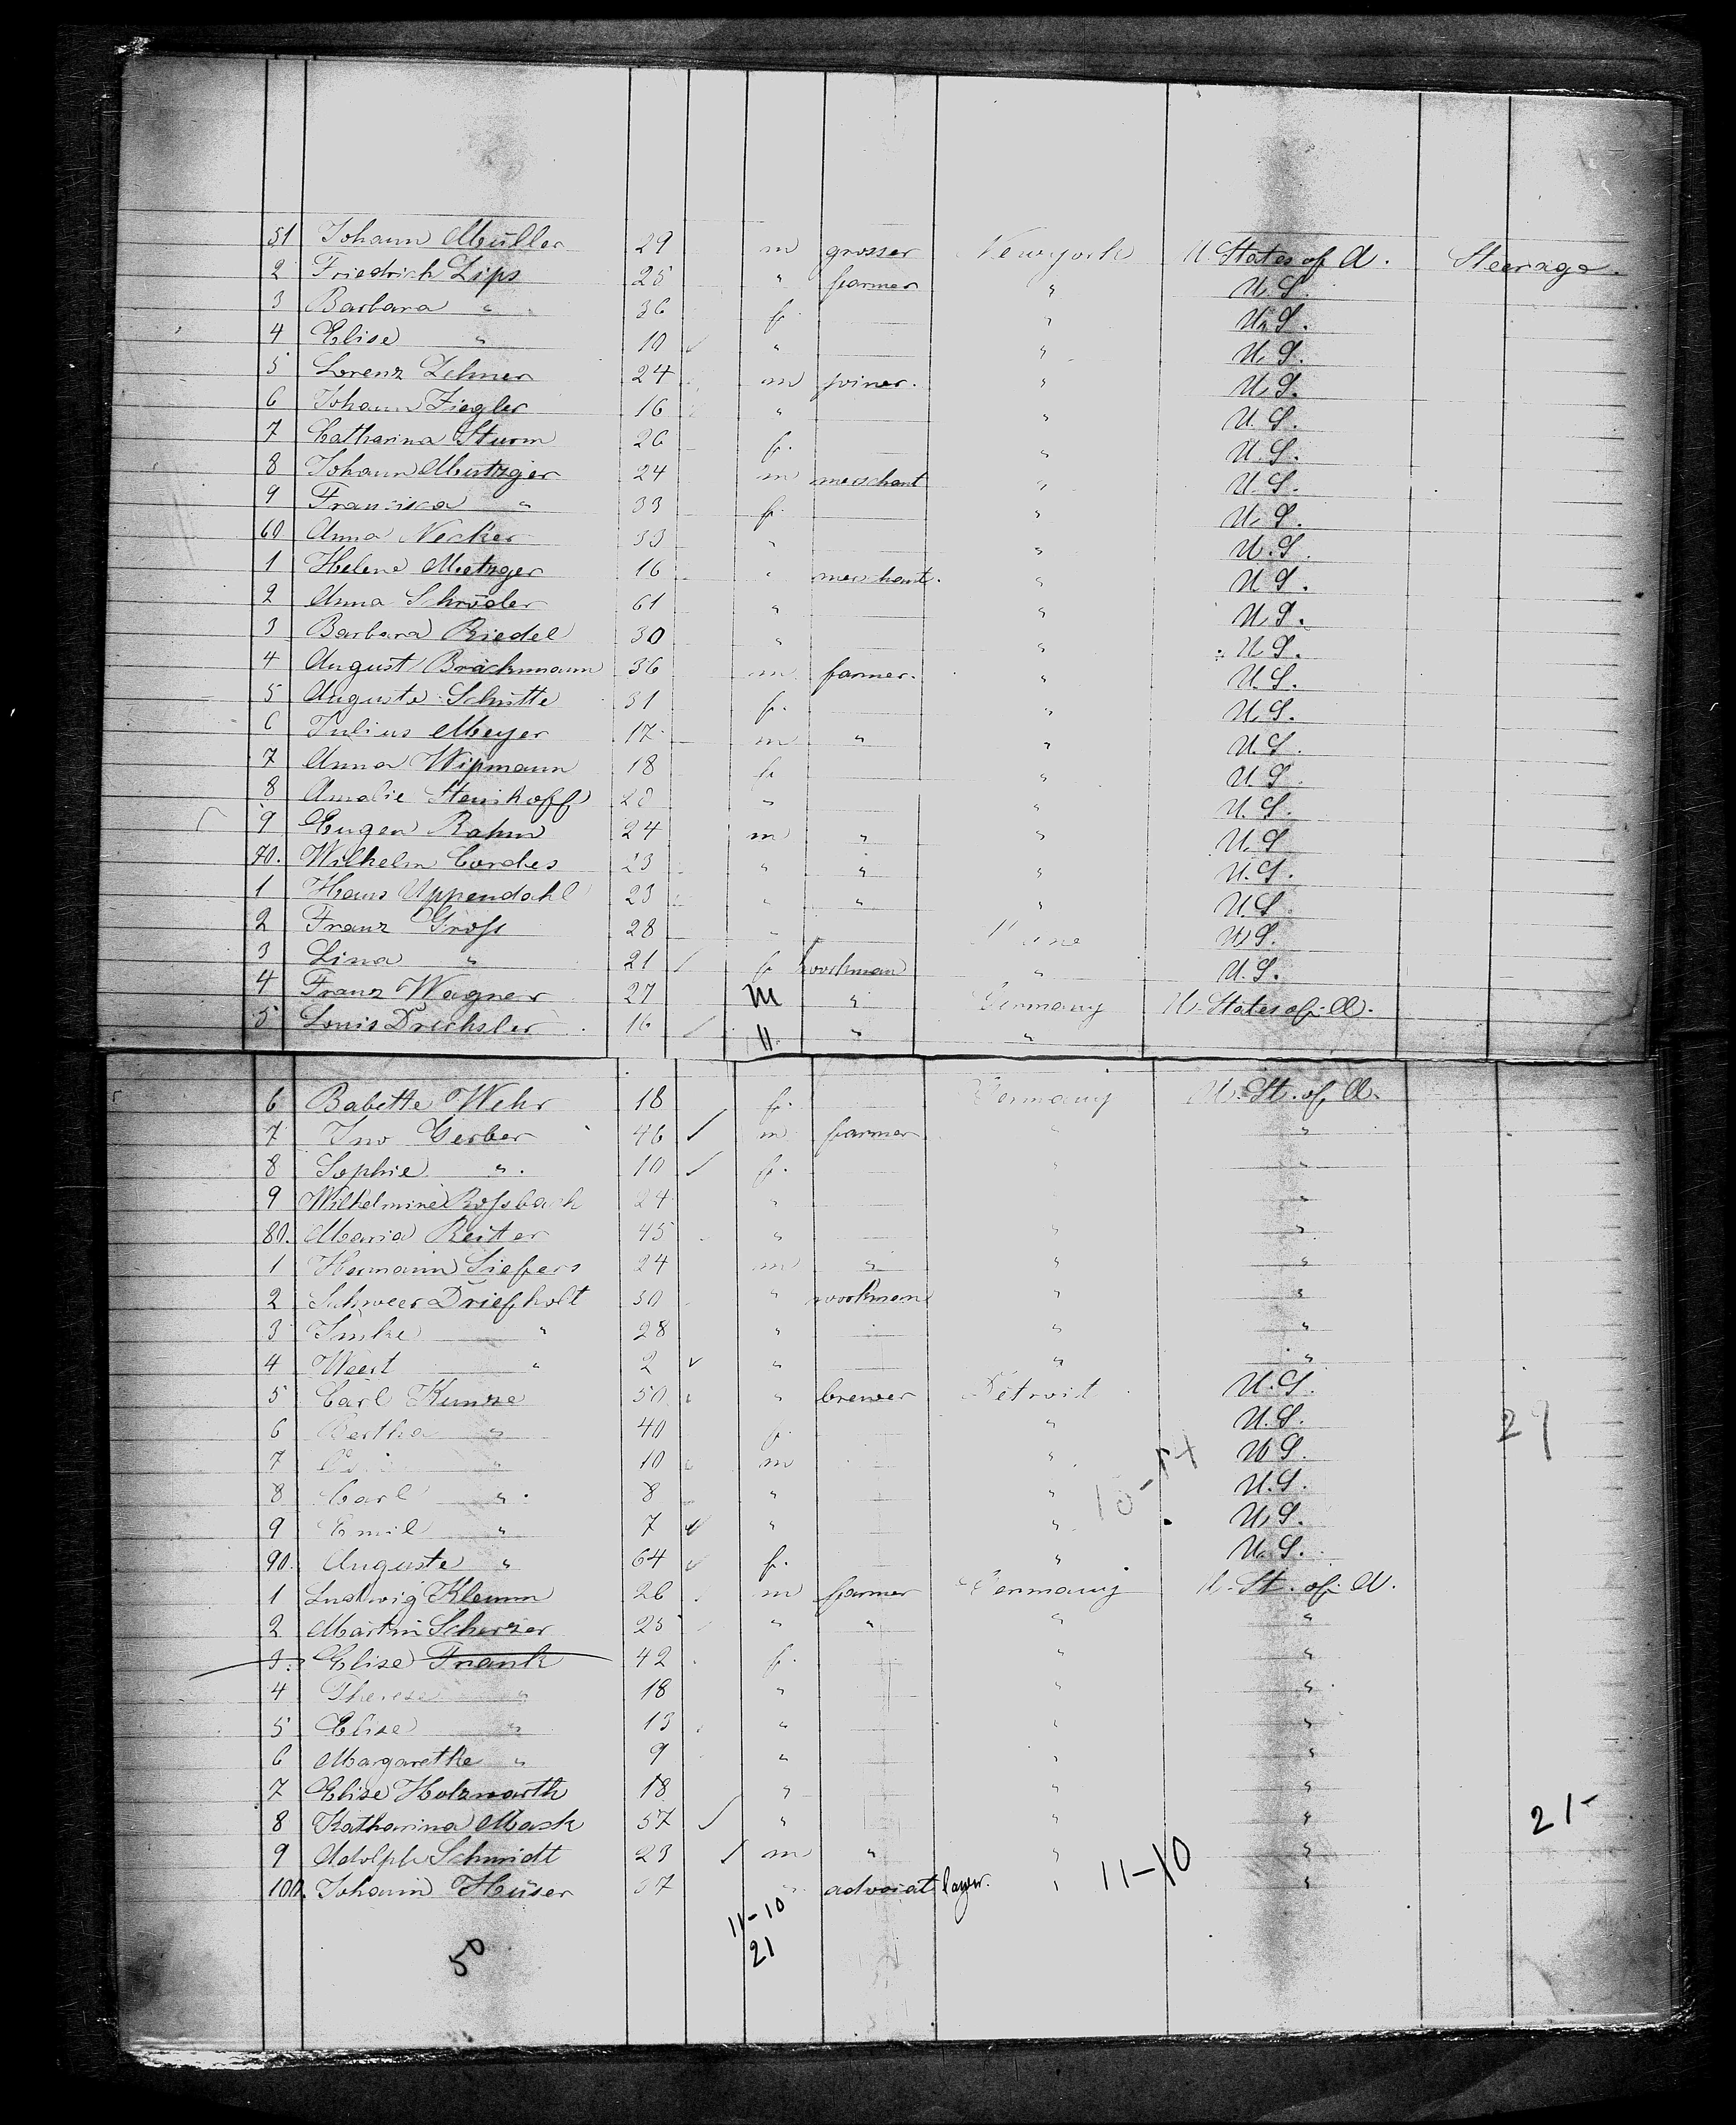 51 Johann Müller 29 m grosser Newyork U States of A. Steerage.
2 Friedrich Lips 25 " farmer " U.S.
3 Barbara " 36 f. " U.S.
4 Elise " 10 " " U.S.
5 Lorenz Zehner 24 m joiner. " U.S.
6 Johann Ziegler 16 " " U.S.
7 Catharina Sturm 26 f. " U.S.
8 Johann Metzger 24 m merchant " U.S.
9 Francisca " 33 f. " U.S.
60 Anna Necker 33 " " U.S.
1 Helene Metzger 16 " merchant. " U.S.
2 Anna Schröder 61 " " U.S.
3 Barbara Riedel 30 " " U.S.
4 August Brackmann 36 m farmer. " U.S.
5 Auguste Schütte 31 f. " U.S.
6 Julius Meyer 17 m " " U.S.
7 Anna Wipmann 18 f. " U.S.
8 Amalie Steinhoff " " U.S.
9 Eugen Rahm 24 m " " U.S.
70. Wilhelm Cordes 23 " " " U.S.
1 Hans Uppendahl 23 " " " U.S.
2 Franz Groß 28 " U.S.
3 Lina " 21 f. woorkman " U.S.
4 Franz Wagner 27 m " Germany U. States of A.
5 Louis Drechsler 16 " " "
6 Babette Wehr 18 f. Germany U. St. of A.
7 Jno Gerber 46 m farmer " "
8 Sophie " 10 f. " "
9 Wilhelmine Roßbach 24 " "
80. Maria Reiter 45 " " "
1 Hermann Siefers 24 m " " "
2 Schweer Driefholt 30 " woorkman " "
3 Imke " 28 " " "
4 Weert " 2 " " "
5 Carl Kunze 50 " brewer Detroit U.S.
6 Bertha " 40 f. " U.S.
7 " 10 m " U.S.
8 Carl " 8 " " U.S.
9 Emil " 7 " " U.S.
90. Auguste " 64 f. " U.S.
1 Ludwig Klemm 26 m farmer Germany U. St. of A.
2 Martin Scherzer 25 " " " "
3. Elise Frank 42 f. " "
4 Therese " 18 " " "
5 Elise " 13 " " "
6 Margarethe " 9 " " "
7 Elise Holzwarth 18 " " "
8 Katharina Mask 57 " " "
9 Adolph Schmidt 23 m " " "
100. Johann Hüser 37 " advocat lawer. " "
29
21-
11-10
11-10
21
50